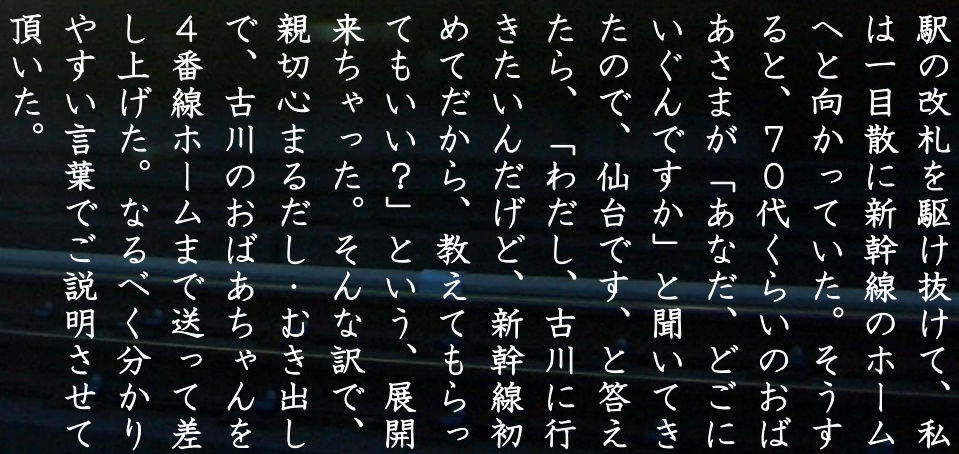 駅の改札を駆け抜けて、私
は一目散に新幹線のホーム
へと向かっていた。そうす
ると、７０代くらいのおば
あさまが「あなだ、どごに
いぐんですか」と聞いてき
たので、仙台です、と答え
たら、「わだし、古川に行
きたいんだげど、新幹線初
めてだから、教えてもらっ
てもいい？」という、展開
来ちゃった。そんな訳で、
親切心まるだし・むき出し
で、古川のおばあちゃんを
４番線ホームまで送って差
し上げた。なるべく分かり
やすい言葉でご説明させて
頂いた。